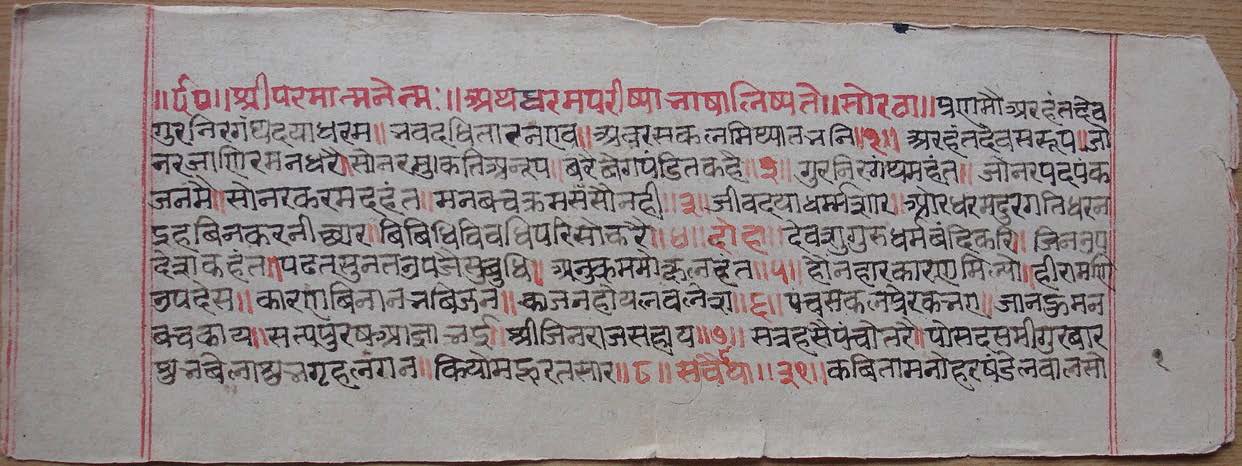 ॥र्द०॥श्रीपरमात्मनेत्मः॥अथधरमपरीष्याभाषालिष्यते॥सोरठा॥प्रणमौअरहंतदेव
गुरनिरगंथदयाधरम॥भवदधितारनएव॥अवरसकलमिथ्यातभनि॥१॥अरहंतदेवसरूप॥जो
नरजांणिरमनधरै॥सोनरमुकतिअनूप॥बरैबेगपंडितकहै॥२॥गुरनिरगंथमहंत॥जोनरपदपंक
जनमै॥सोनरकरमदहंत॥मनबचक्रमसंसौनही॥३॥जीवदयाधर्म्मसार॥औरधरमदुरगतिधरन
इहबिनकरनीछार॥बिबिधिविवधिपरिसोकरै॥४॥दोहा॥देवसुगुरुधर्मबंदिकरि॥जिनउप
देसकहंत॥पढतसुनतउपजेसुबुधि॥अनुक्रममोक्षलहंत॥५॥होनहारकारणमिल्यो॥हीरामणि
उपदेस॥कारणबिनानभबिजन॥काजनहोयलवलेस॥६॥पंचसकलपेरकभए॥जानहुमन
बचकाय॥सत्यपुरषआज्ञाभई॥श्रीजिनराजसहाय॥७॥सत्रहसैपंचोतरै॥पोसदसमीगुरबार
शुभबेलाशुभगृहलगन॥कियोमहूरतसार॥८॥सवैया॥३१॥कबितामनोहरषंडेलवालसो
१